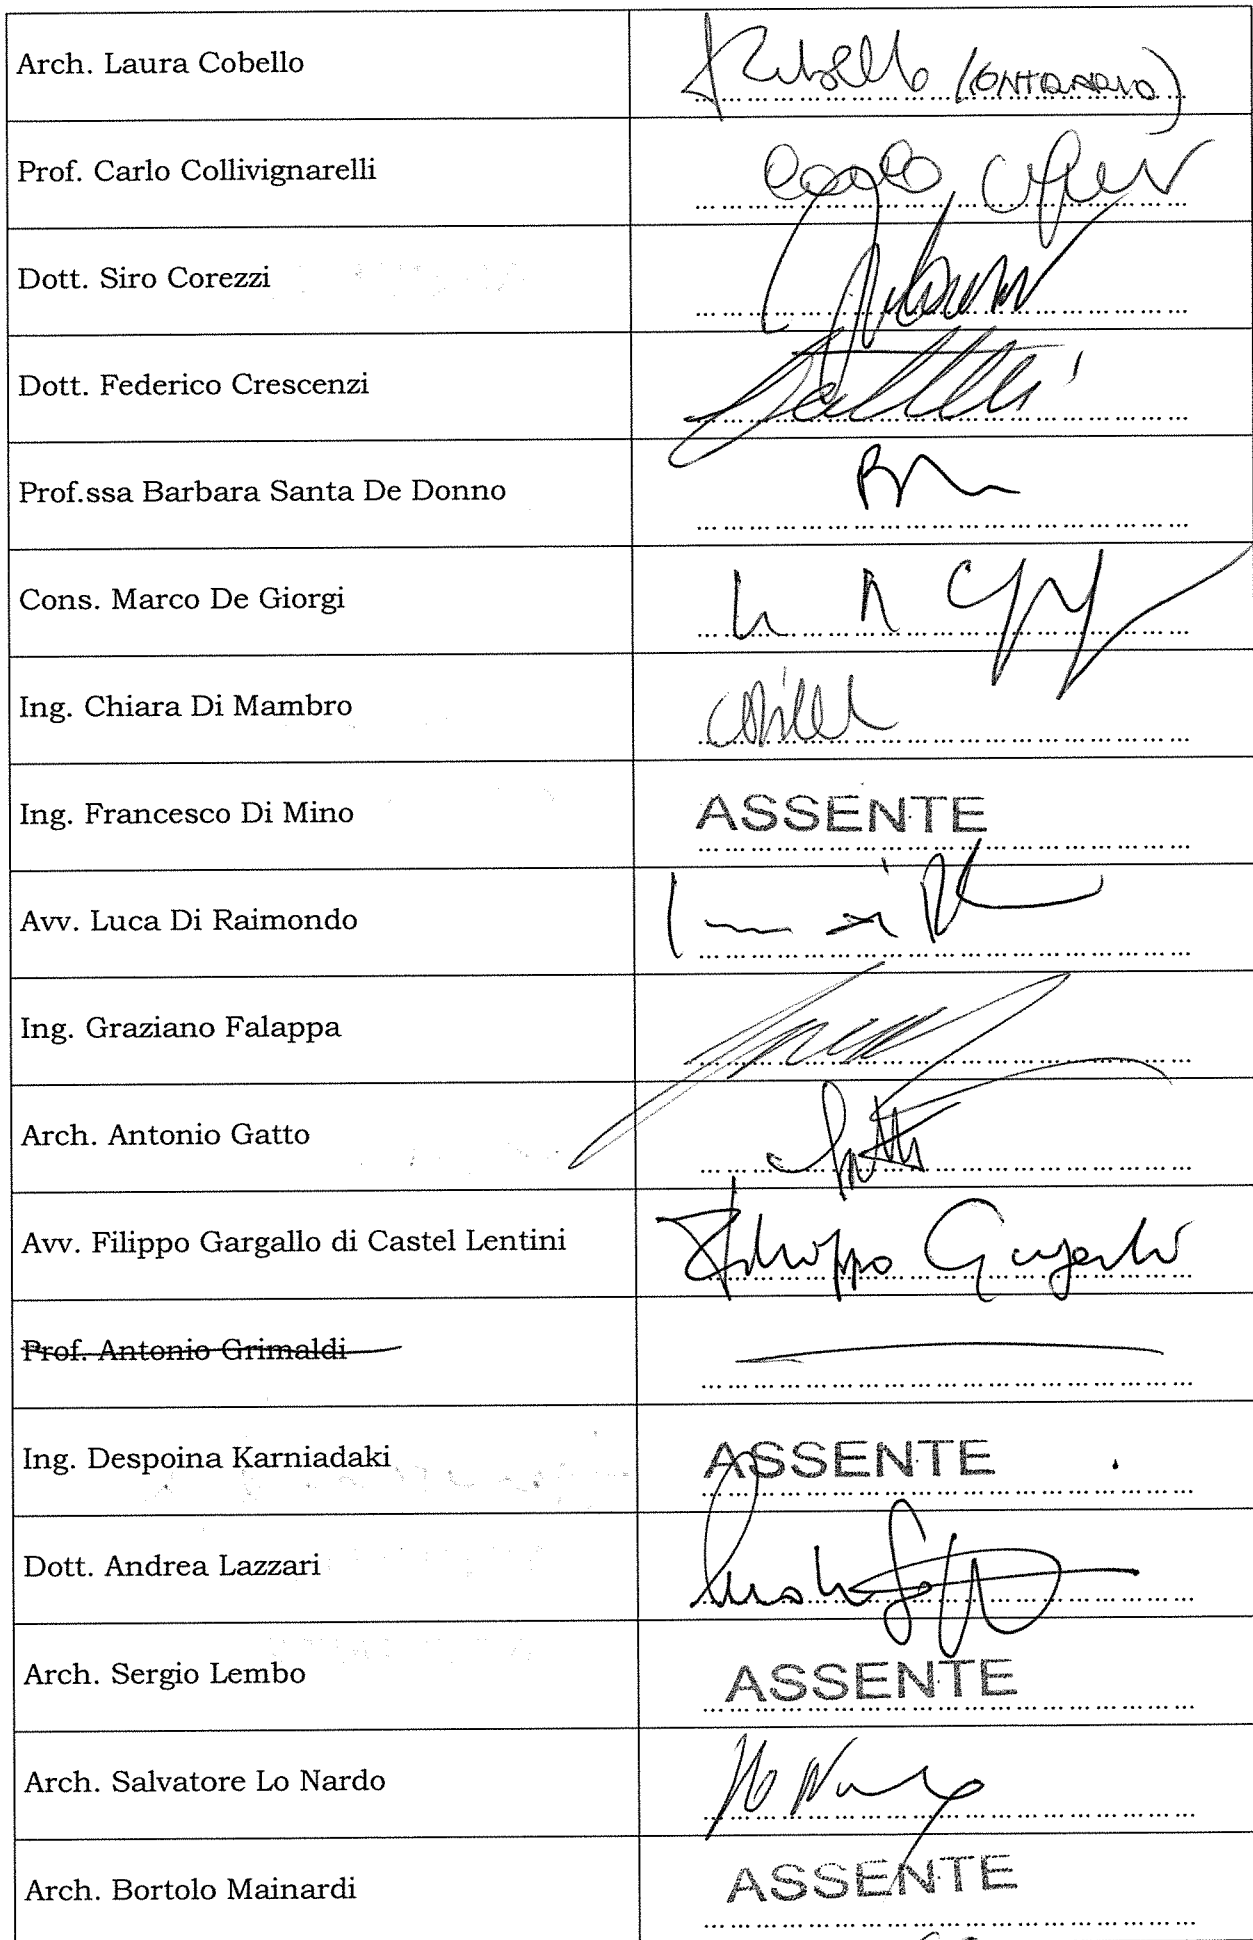 Arch. Laura Cobello (CONTRARIO)
Prof. Carlo Collivignarelli
Dott. Siro Corezzi
Dott. Federico Crescenzi
Prof.ssa Barbara Santa De Donno
Cons. Marco De Giorgi
Ing. Chiara Di Mambro
Ing. Francesco Di Mino ASSENTE
Avv. Luca Di Raimondo
Ing. Graziano Falappa
Arch. Antonio Gatto
Avv. Filippo Gargallo di Castel Lentini Filippo Gargallo
Prof. Antonio Grimaldi
Ing. Despoina Karniadaki ASSENTE
Dott. Andrea Lazzari
Arch. Sergio Lembo ASSENTE
Arch. Salvatore Lo Nardo
Arch. Bortolo Mainardi ASSENTE